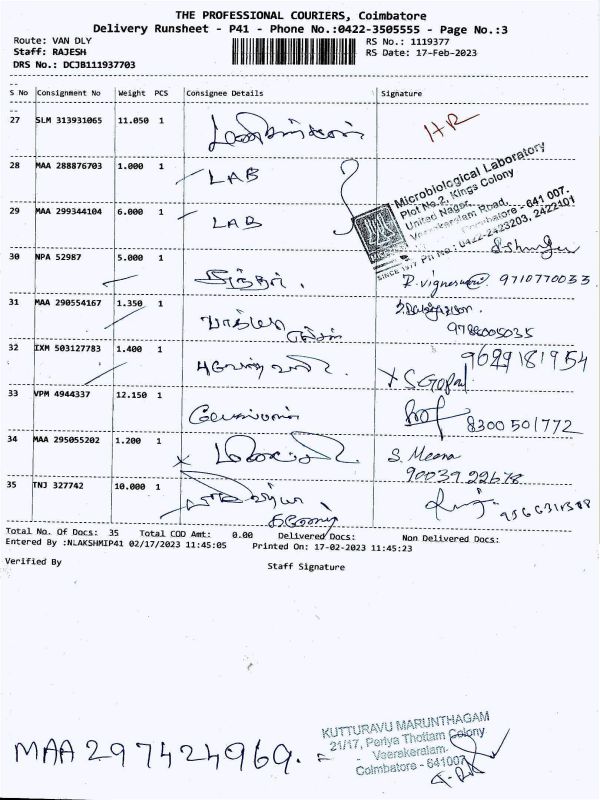 THE PROFESSIONAL COURIERS, Coimbatore
Delivery Runsheet - P41 - Phone No.:0422-3505555 - Page No.:3
Route: VAN DLY RS No.: 1119377
Staff: RAJESH RS Date: 17-Feb-2023
DRS No.: DCJB111937703
S No Consignment No Weight PCS Consignee Details Signature
27 SLM 313931065 11.050 1 HR
28 MAA 288876703 1.000 1 LAB
Microbiological Laboratory
Plot No.2, Kings Colony
United Nagar,
Veerakeralam Road,
Coimbatore - 641 007.
SINCE 1977 PH No : 0422-2423203, 2422101
29 MAA 299344104 6.000 1 LAB
30 NPA 52987 5.000 1 9710770033
31 MAA 290554167 1.350 1 9788005035
32 IXM 503127783 1.400 1 X S Gopal 9629181954
33 VPM 4944337 12.150 1 8300501772
34 MAA 295055202 1.200 1 X S. Meena
9003922678
35 TNJ 327742 10.000 1
Total No. Of Docs: 35 Total COD Amt: 0.00 Delivered Docs: Non Delivered Docs:
Entered By :NLAKSHMIP41 02/17/2023 11:45:05 Printed On: 17-02-2023 11:45:23
Verified By Staff Signature
KUTTURAVU MARUNTHAGAM
21/17, Periya Thottam Colony
Veerakeralam.
Coimbatore - 641007
MAA 297424969.